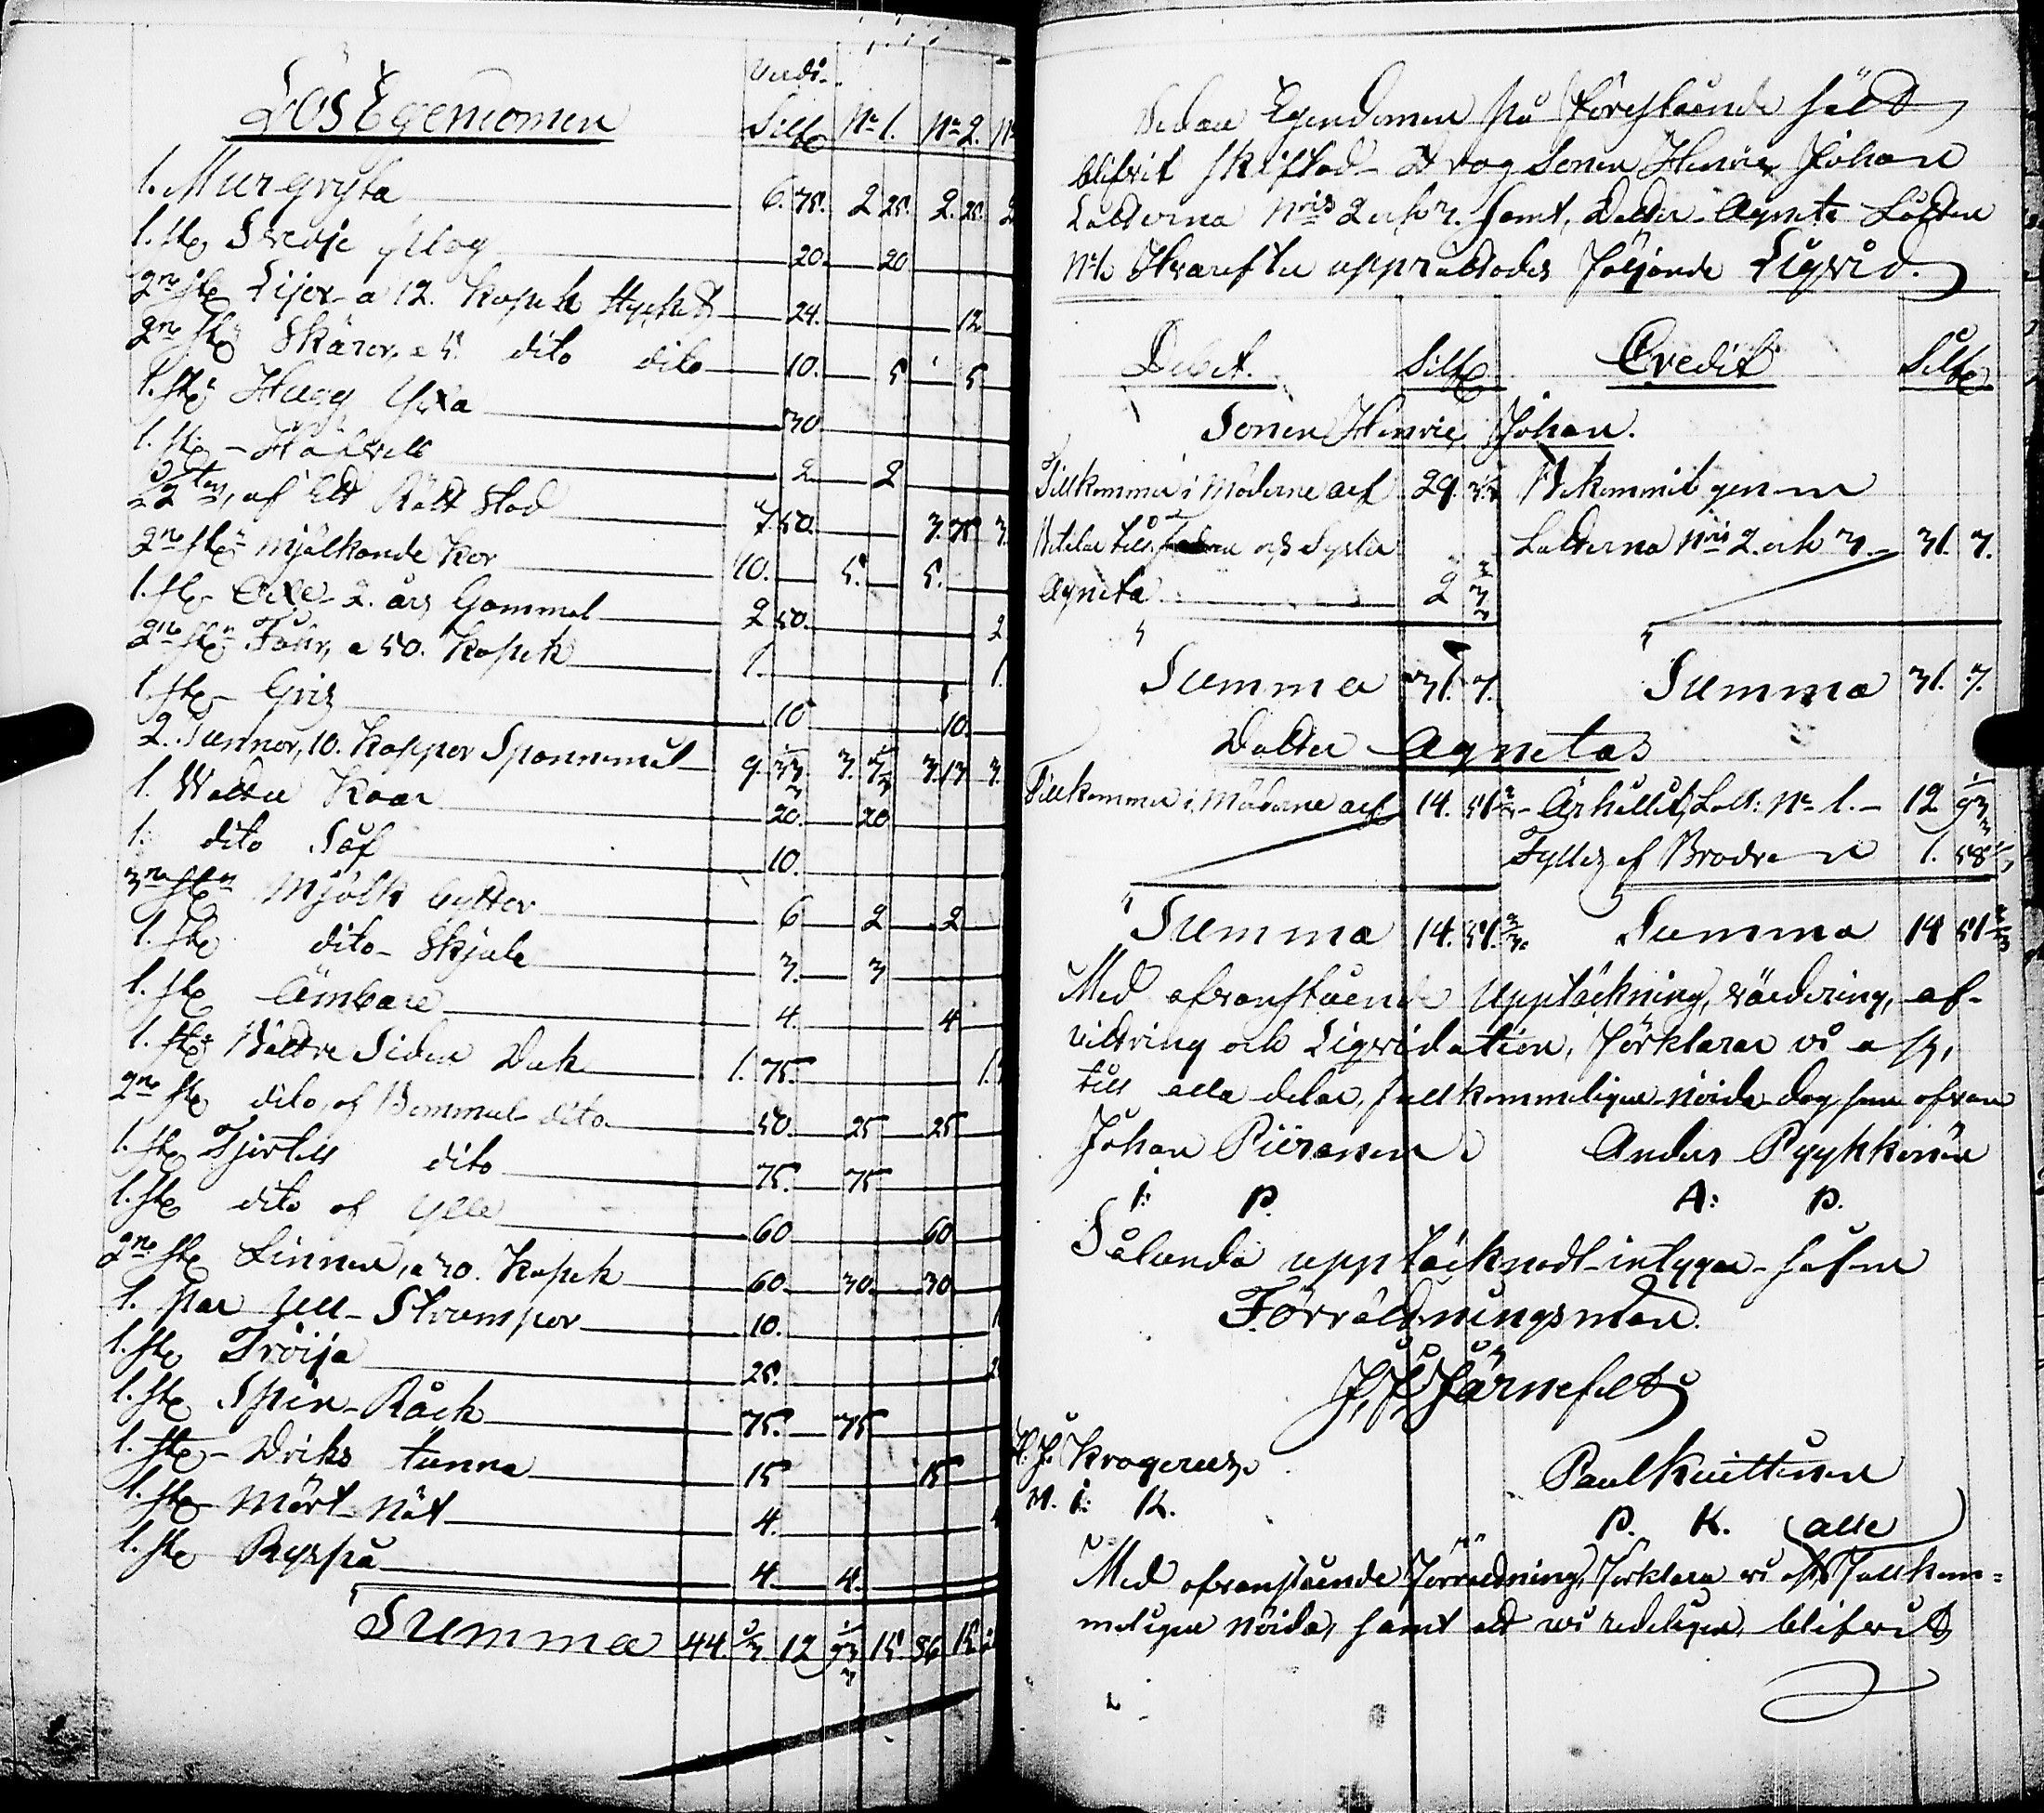 Lös Egendomen
Värdi-
Silfr N:o 1. N:o 2.
1. Murgryta 6. 75. 2 25. 2. 25.
1. st: Svedje 20. 20
2ne st: Lijor a 12. Kopek Stycket 24. 12
2ne st: Skäror, a 5. dito dito 10. 5 5
1. st: Hugg Yxa 30
1. st: 2 2
7. 50. 3. 75 3.
2ne st:r Mjölkande Kor 10. 5. 5.
1. st: 2. års Gammal 2 50. 2
2ne st:n Får, a 50. Kopek 1. 1.
1. st: Gris 10 10.
2. Tunnor, 10. Kappor Spannemål 9. 33 3. 3. 13 3.
1. Watten Kaar 20. 20
1. dito Såf 10.
3ne st:n Mjölk bytter 6 2 2
1. st: dito Skjula 3. 3
1. st: Ämbare 4. 4
1. st: Bättre Siden Duk 1. 75.
2ne st: dito, af Bommul dito 50. 25 25
1. st: Kjortell dito 75. 75
1. st: dito af Ylle 60 60
2ne st: Linnen, a 30. Kopek 60. 30. 30
1. Par Ull-Strumpor 10.
1. st: Tröija 25.
1. st: Spin-Råck 75. 75
1. st: Driks tunna 15 15
1. st: Mört-Nät 4.
1. st: Ryspå 4. 4.
Summa 44. 12 15. 86
Sedan Egendomen på förestående sätt
blifvit skiftad Drog Sonen Henric Johan
Lotterna N:ris 2 och 3. samt, Dotter Agneta Lotten
N:o 1. Hvarefter upprättades följande Liqvid.
Debet. Silfr Credit Silfr
Sonen Henric Johan.
Tillkommer i Möderne arf 29. Bekommit genom
Betalar till och Syster Lotterna N:ris 2. och 3. 31. 7.
Agneta 2
Summa 31. 7. Summa 31. 7.
Dotter Agnetas
Tillkommer i Möderne arf 14. 51 2/3 Ärhållit, Lott: N:o 1. 12 93
Fylles af Brodren 1. 58
Summa 14. 51. 2/3. Summa 14 51 2/3
Med ofvanstående Upptäckning, värdering, af-
vittring och Liqvidation, förklarar vi oss,
till alla delar, fullkommeligen nöida dag som ofvan
Johan Piironen Anders Pyykkönen
I: P. A: P.
Sålunda upptäcknadt intygar hafva
Förrättningsmän.
Järnefelt
H. J. Krogerus Paul Kuittinen
K. P. K.
alla
Med ofvanstående förrättning, förklara vi oss fullkom=
meligen nöida, samt att vi redeligen blifvit